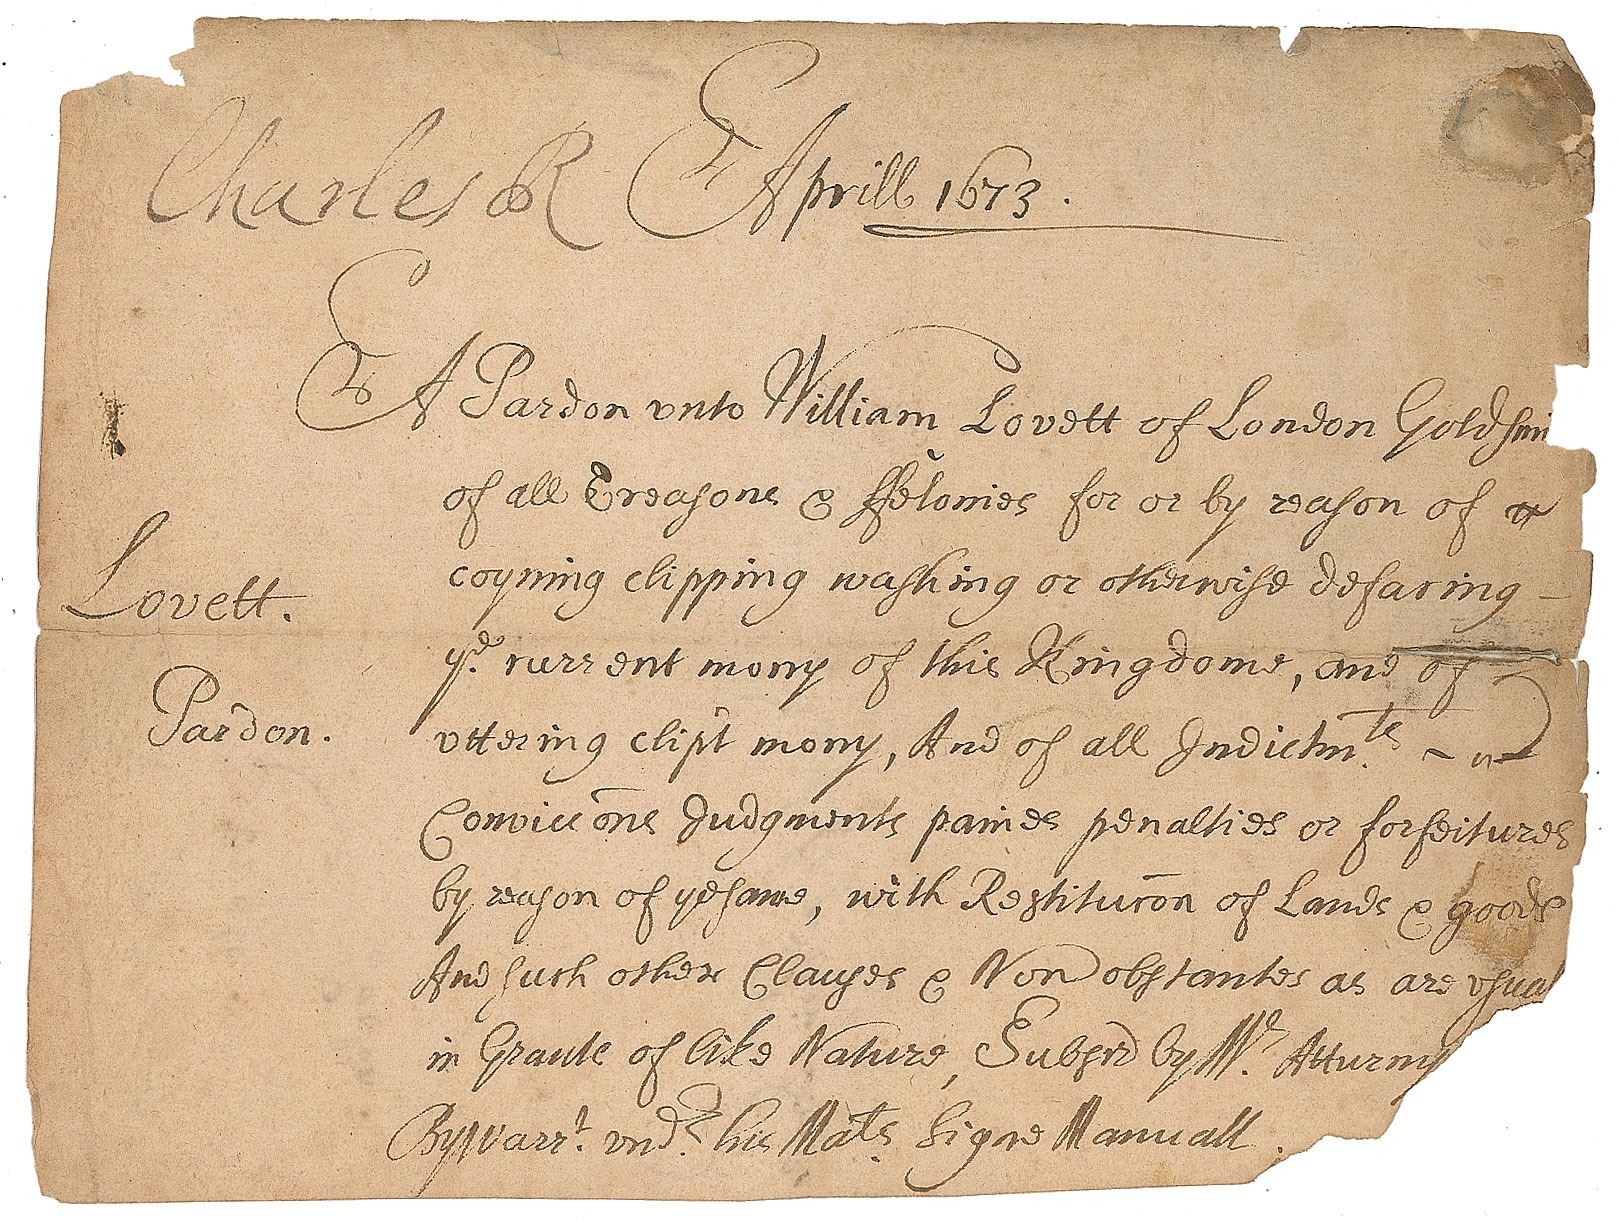 Charles R Aprill 1673.
A Pardon vnto William Lovett of London Goldsmi
of all Treasons & ffelonies for or by reason of
coyning clipping washing or otherwise defacing
ye. current mony of this Kingdome, and of
vttering clipt mony, And of all Indictmts.
Lovett.
Pardon.
Conviccōns Judgments paines penalties or forfeitures
by reason of ye same, with Restitucōn of Lands & goods
And such other Clauses & Non obstantes as are vsual
in Grants of like Nature, Subscrd by Mr. Atturny
By warrt. vndr. his Mats. Signe Manuall.